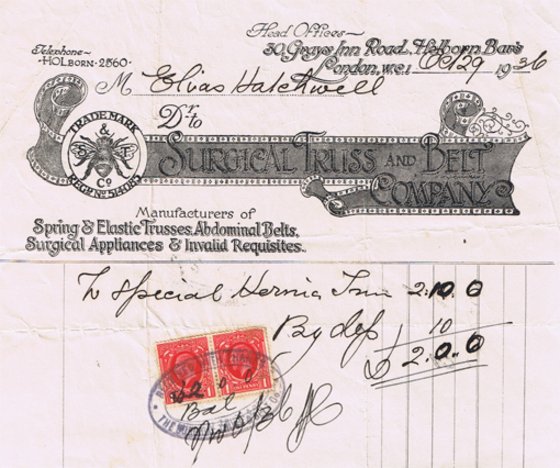 Head Offices~
Telephone~
HOLBORN·2860·
30, Grays Inn Road, Holborn Bars
London, W.C.1 Oct 29 1936
M Elias Hatchwell
Dr. to
TRADE MARK
& Co
REGD. No
SURGICAL TRUSS AND BELT
COMPANY
Manufacturers of
Spring & Elastic Trusses, Abdominal Belts,
Surgical Appliances & Invalid Requisites.
To Special Hernia 2.10.0
By dep 10
£2.0.0
Bal